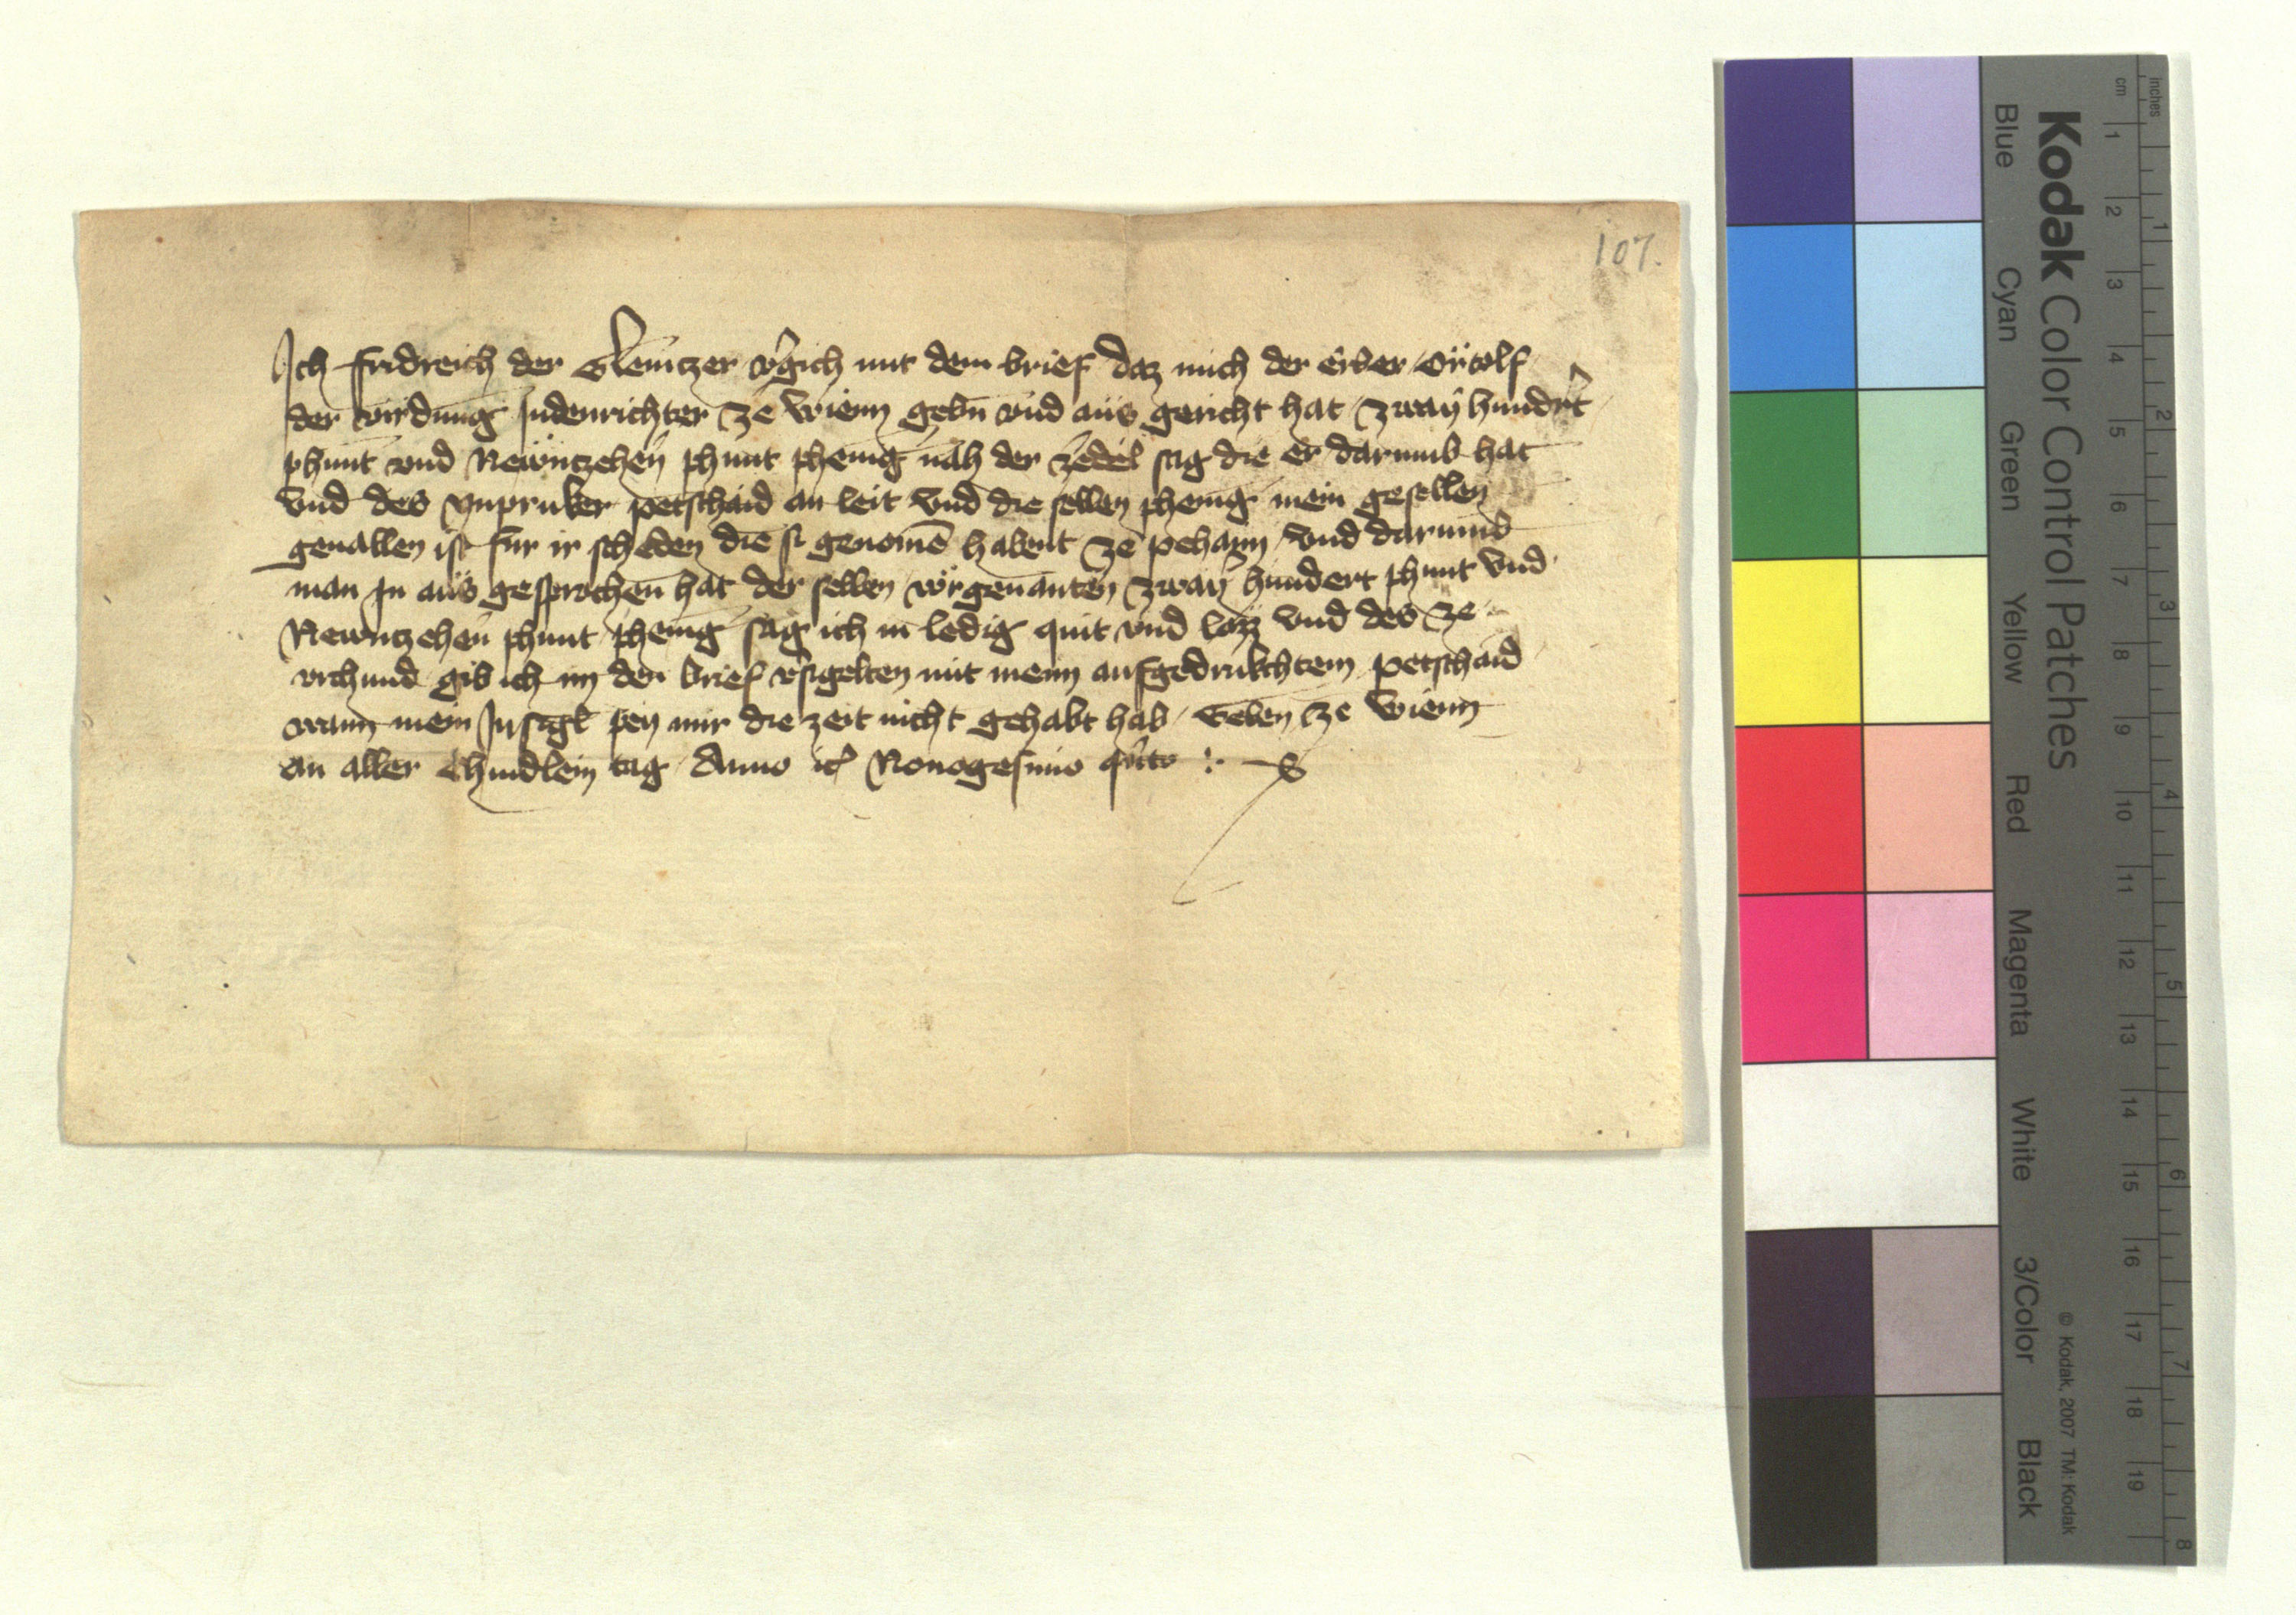 107.
Ich Fridreich der Glenitzer vergich mit dem brief daz mich der erber Ortolf
der virdung Judenrichter ze Wienn gebn vnd aus gericht hat zway hundrt
phunt vnd Newntzehen phunt phenig nah der zedel sag die er darumb hat
vnd des ynpruker petschaid an leit vnd die selben phenig mein gesellen
geuallen ist fur ir scheden die si genomē habent ze pehaym vnd darumb
man in aus gesprochen hat der selben vorgenanten zway hundert phunt vnd
Newntzehen phunt phenig sag ich in ledig quit vnd lozz vnd des ze
vrchund gib ich im den brief vsigelten mit meim aufgedrukchtem petschaid
wann mein Insigl pey mir die zeit nicht gehabt hab Geben ze Wienn
an aller chindlein tag Anno etc Nonogesimo qnto
Kodak Color Control Patches
Blue Cyan Green Yellow Red Magenta White 3/Color Black
© Kodak, 2007 TM: Kodak
inches 1 2 3 4 5 6 7 8
cm 1 2 3 4 5 6 7 8 9 10 11 12 13 14 15 16 17 18 19